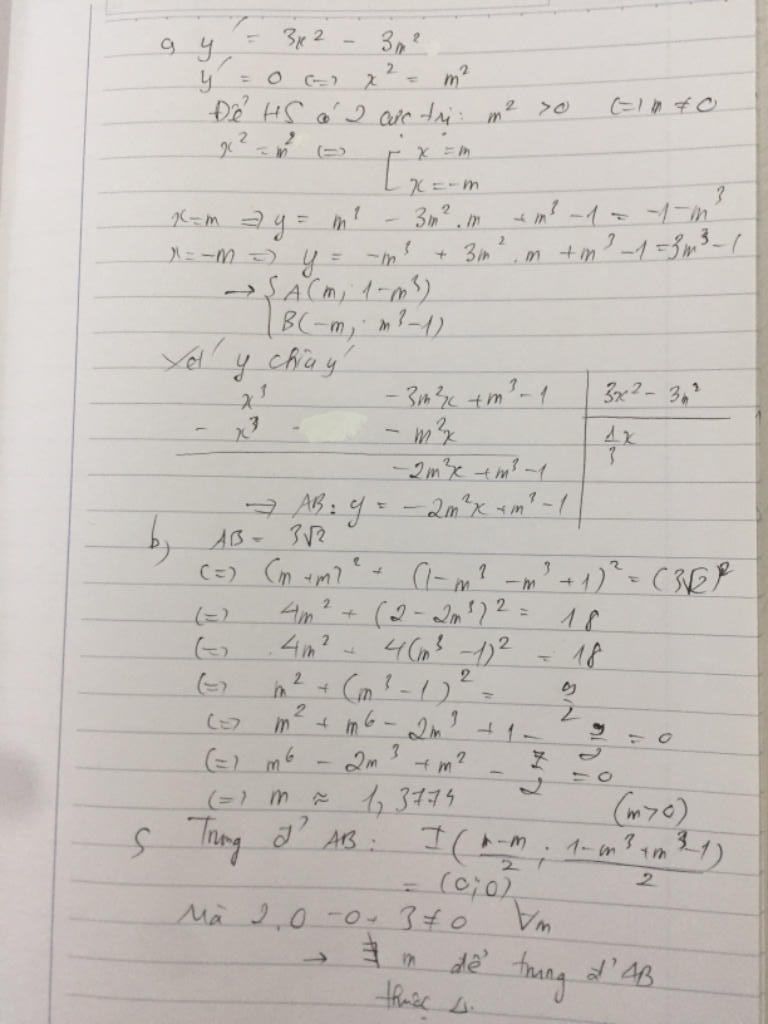 a, y' = 3x² - 3m²
y' = 0 (=) x² = m²
Để HS có 2 cực trị: m² > 0 (=) m ≠ 0
x² = m² (=) [ x = m
x = -m
x = m => y = m³ - 3m².m + m³ - 1 = -1 - m³
x = -m => y = -m³ + 3m².m + m³ - 1 = 3m³ - 1
→ { A(m; 1-m³)
B(-m; m³-1)
y chia y'
x³ - 3m²x + m³ - 1 | 3x² - 3m²
- x³ - m²x | 1/3 x
-2m²x + m³ - 1
=> AB: y = -2m²x + m³ - 1
b, AB = 3√2
(=) (m+m)² + (1-m³-m³+1)² = (3√2)²
(=) 4m² + (2-2m³)² = 18
(=) 4m² + 4(m³-1)² = 18
(=) m² + (m³-1)² = 9/2
(=) m² + m⁶ - 2m³ + 1 - 9/2 = 0
(=) m⁶ - 2m³ + m² - 7/2 = 0
(=) m ≈ 1,3774 (m>0)
Trung đ' AB: I(m-m/2; 1-m³+m³-1/2)
= (0;0)
Mà 2.0 - 0 + 3 ≠ 0 ∀m
→ ∄ m để trung đ' AB
thuộc Δ.